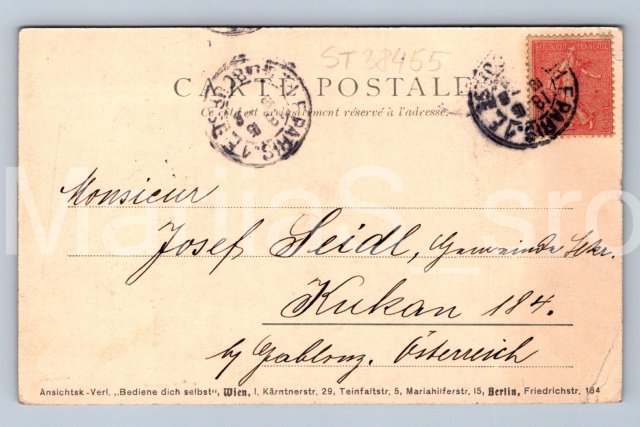 ST38455
REPUBLIQUE FRANÇAISE
CARTE POSTALE
Ce côté est exclusivement réservé à l'adresse.
PARIS
PARIS
Monsieur
Josef Seidl, Gemeinde Sekr.
Kukan 184.
by Gablonz. Österreich
MarijaS_sro
Ansichtsk-Verl. „Bediene dich selbst", Wien, I. Kärntnerstr. 29, Teinfaltstr. 5, Mariahilferstr. 15, Berlin, Friedrichstr. 184